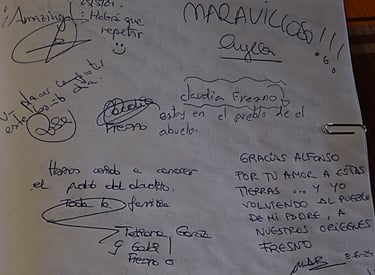 ¡Amazing!
Habrá que
repetir
MARAVILLOSO!!!
Un placer
este
día.
Jose
Claudia
Fresno
Claudia Fresno
estoy en el pueblo de el
abuelo.
Hemos venido a conocer
el pueblo del abuelito.
Toda la familia
Tatiana
Fresno
GRACIAS ALFONSO
POR TU AMOR A ESTAS
TIERRAS ... Y YO
VOLVIENDO AL PUEBLO
DE MI PADRE, A
NUESTROS ORIGENES
FRESNO
3-6-24